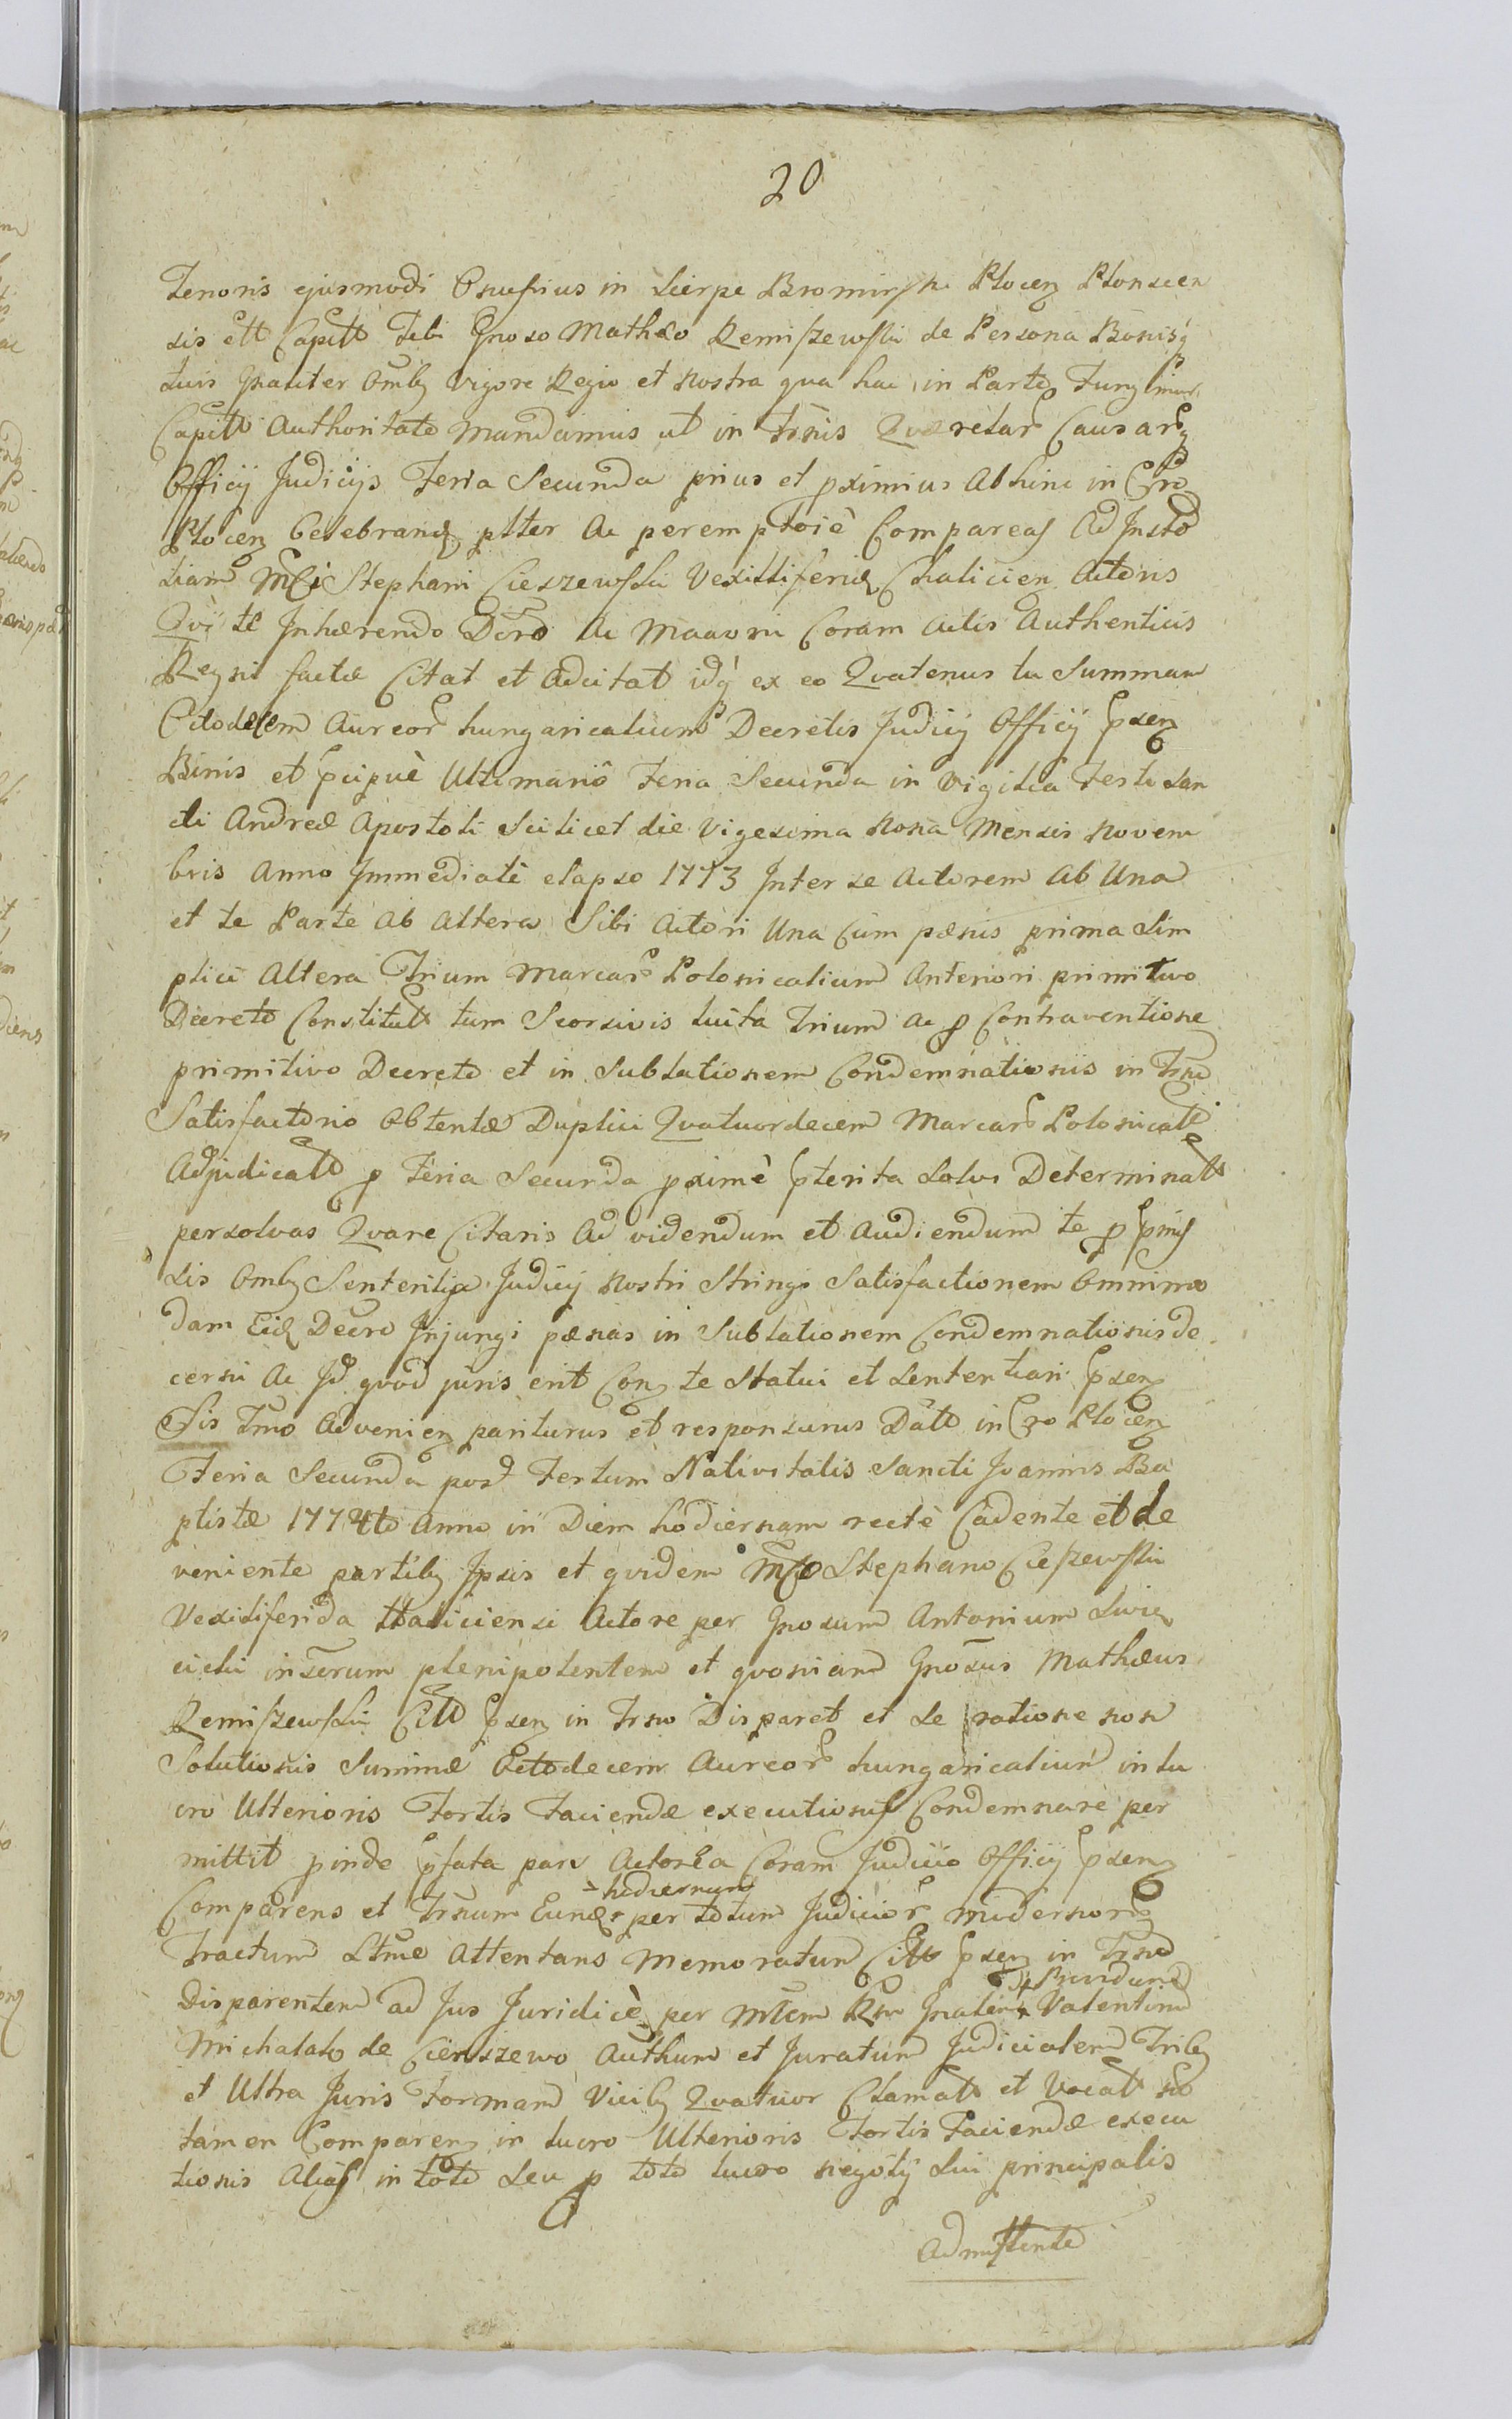 20
Tenoris ejusmodi Onufrius in Sierpc Bromirski Plocen Plonscen
sis ett Capitt Tibi Gnoso Mathæo Remiszewski de Persona Bonisq
tuis Gnaliter Ombg Vigore Regio et Nostra qua hac in Parte Fungimur
Capitt Authoritate Mandamus ut in Trnis Qværelar Causarq
Officij Judicijs Feria Secunda prius et pximius Abhinc in Cro
Plocen Celebrand pltter Ac peremptoiè Compareas Ad Insto
tiam Mci Stephani Cieszewski Vexilliferid Chalicien Actoris
Qvi te Inhærendo Dcro Ac Maaoni Coram Actis Authenticis
Regni factæ Citat et Adcitat idq ex eo Qvatenus tu Summam
Octodecem Aureor hungaricalium Decretis Judicij Officij psen
Binis et pcipuè Ultimario Feria Secunda in Vigilia Festi San
cti Andreæ Apostoli Scilicet die Vigesima Nona Mensis Novem
bris Anno Immediatè elapso 1773 Inter se Actorem Ab Una
et te Parte Ab Altera Sibi Actori Una Cum pænis prima Sim
plici Altera Trium Marcar Polonicalium Anteriori primitivo
Decreto Constitutt tum Seorsivis luita Trium Ac p Contraventione
primitivo Decreto et in Sublationem Condemnationis in Trno
Satisfactorio Obtentæ Duplici Qvatuordecem Marcar Polonicatt
Adjudicatt p Feria Secunda pximè pterita Solvi Determinatt
persolvas Qvare Citaris Ad videndum et Audiendum te p pmis
sis Ombg Sententia Judicij Nostri Stringi Satisfactionem Omnimo
dam Eid Decro Injungi pænas in Sublationem Condemnationis de
cerni Ac Id qvod juris erit Con te Statui et Sententiari psen
Sis Trno Advenien pariturus et responsurus Datt in Cro Plocen
Feria Secunda post Festum Nativitatis Sancti Joannis Ba
ptistæ 1774to Anno in Diem hodiernam rectè Cadente et de
veniente partibg Ipsis et qvidem Mco Stephano Cieszewski
Vexiliferida Haliciensi Actore per Gnosum Antonium Swie
cicki inserum plenipotentem et qvoniam Gnosus Mathæus
Remiszewski Citt psen in Trno Disparet et Se ratione non
Solutionis Summæ Octodecem Aureor hungaricalium in lu
cro Ulterioris Fortis Faciendæ executionis Condemnare per
mittit pinde pfata pars Actorea Coram Judicio Officij psen
hodiernum
Comparens et Trnum Eund per totum Judicior modernor
Tractum Ltme Attentans Memoratum Citt psen in Trno
Providum
Disparentem ad Jus Juridicè per Mtem Rni Gnalem Valentinum
Michalak de Cieniszewo Authum et Juratum Judicialem Tribg
et Ultra Juris Formam Vicibg Qvatuor Clamatt et Vocatt no
tamen Comparen in lucro Ulterioris Fortis Faciendæ execu
tionis Alias in toto Seu p toto lucro negotij Sui principalis
Admittente